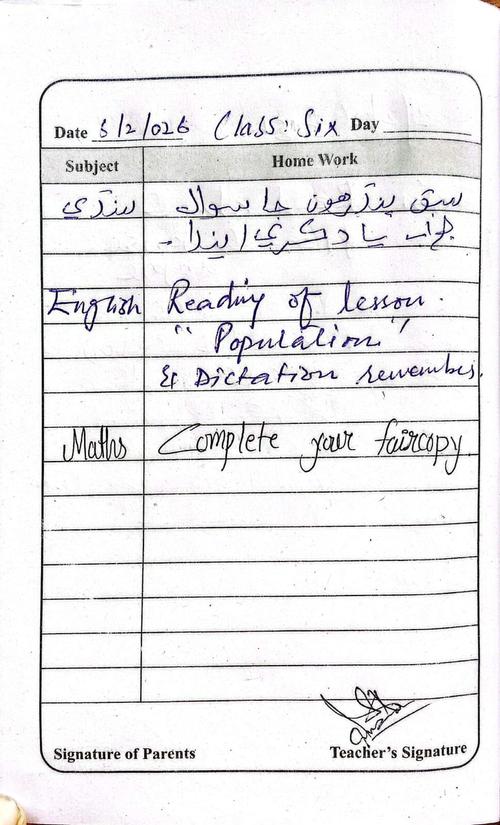 Date 6/2/026 Class: Six Day
Subject Home Work
سنڌي سبق پنڌرهون جا سوال
جواب ياد ڪري ايندا -
English Reading of lesson.
"Population"
& Dictation remember.
Maths Complete your faircopy.
Signature of Parents Teacher's Signature